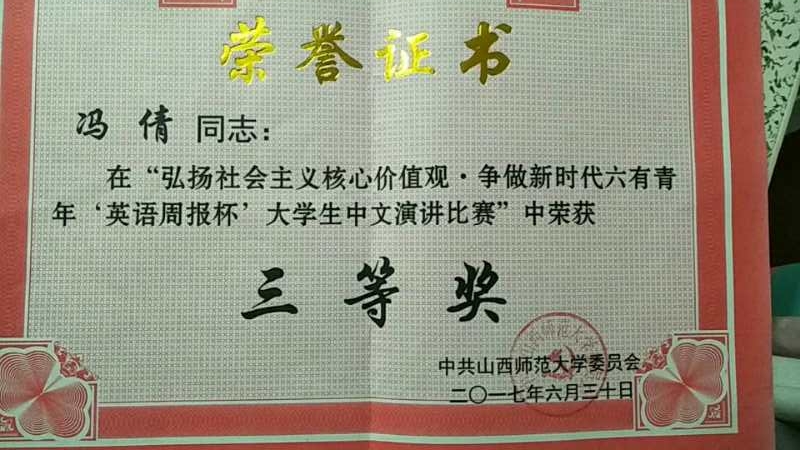 荣誉证书
冯倩 同志：
在“弘扬社会主义核心价值观·争做新时代六有青
年‘英语周报杯’大学生中文演讲比赛”中荣获
三等奖
中共山西师范大学委员会
二〇一七年六月三十日